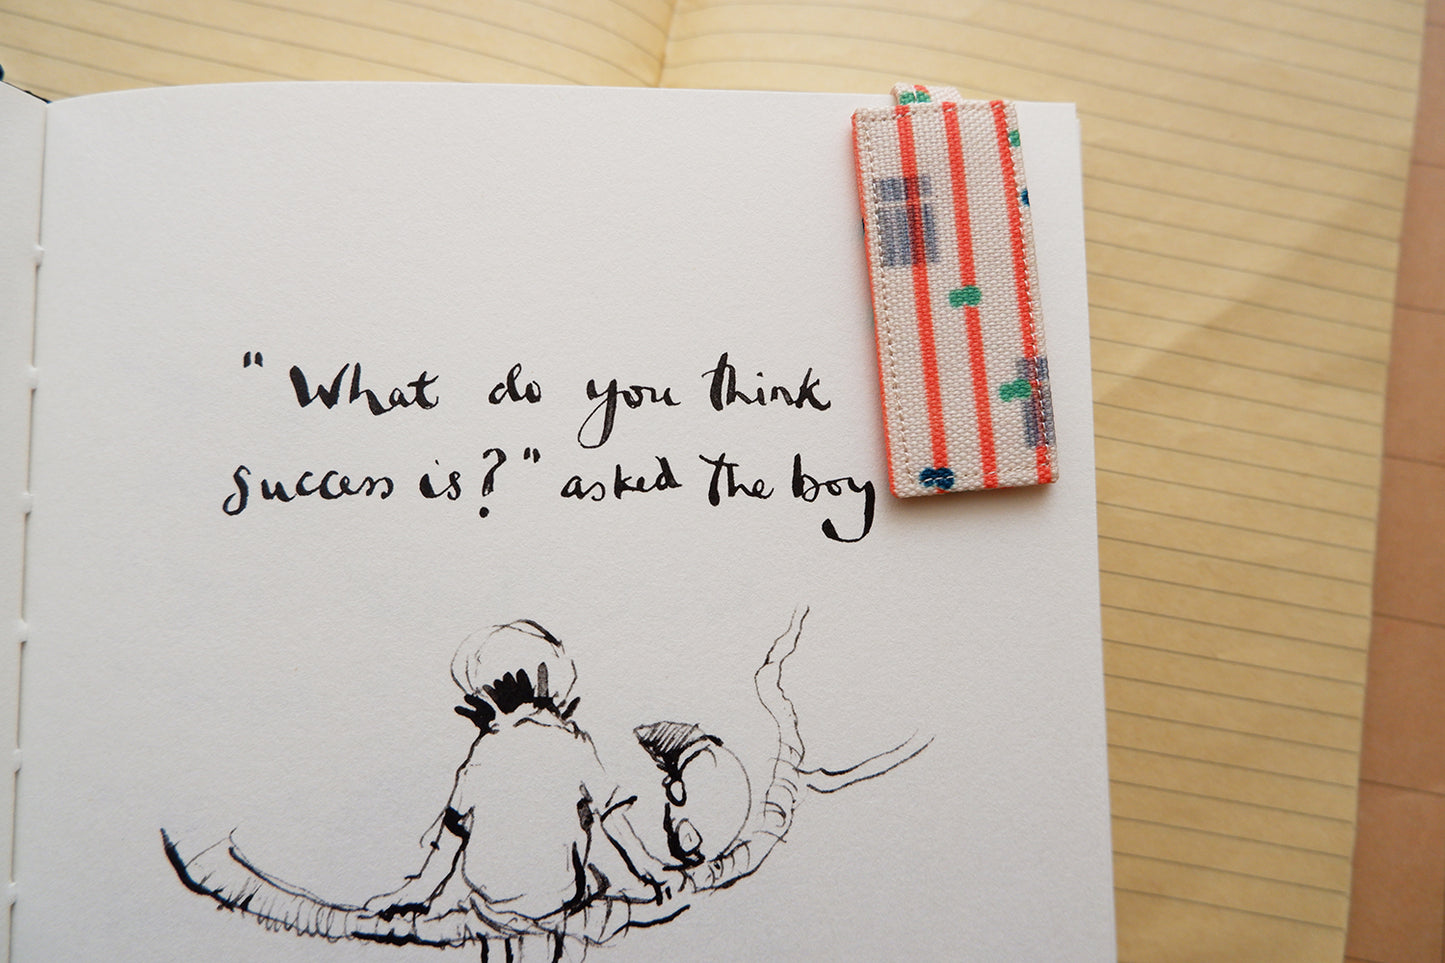 "What do you think
success is?" asked the boy